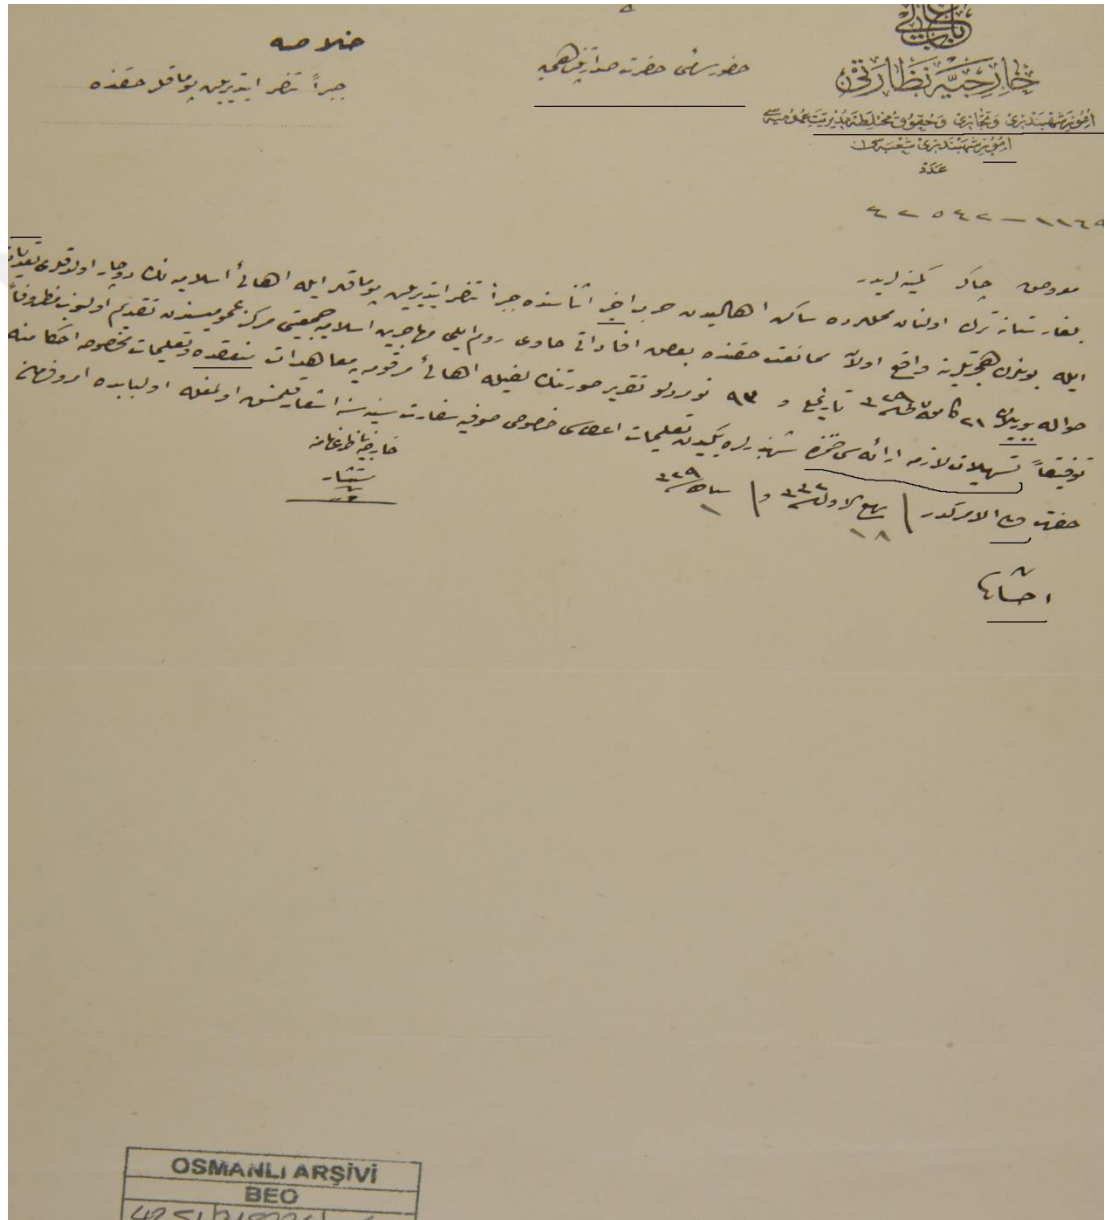 باب عالی
خارجیه نظارتی
امور شهبندری و تجاری و حقوق مختلطه مدیریت عمومیه سی
امور شهبندری شعبه سی
عدد
حضور سامئ حضرت صدارتپناهی به
خلاصه
جبراً تنصر ایتدیریلن پوماقلر حقنده
معروض چاکر کمینه لریدر
بلغارستانه ترك اولنان محللرده ساکن اهالیدن حرب اخیر اثناسنده جبراً تنصر ایتدیریلن پوماقلر ایله اهالئ اسلامیه نك دوچار اولدقلری تعدیات
ایله بونلرك هجرتلرینه واقع اولان ممانعت حقنده بعض افاداتی حاوی روم ایلی مهاجرین اسلامیه جمعیتی مرکز عمومیسندن تقدیم اولنوب منظروفاً
حواله بیوریلان ٢١ کانون ٣٢٩ تاریخلی و ٩٣ نومرولو تقریر صورتنك لفیله اهالئ مرقومه یه معاهدات منعقده و تعلیمات مخصوصه احکامنه
توفیقاً تسهیلات لازمه ارائه سی ضمننده شهبندرلره یکیدن تعلیمات اعطاسی خصوصی صوفیه سفارت سنیه سنه اشعار قلنمش اولمغله اولبابده امر و فرمان
حضرت من له الامرکدر ١٨ ربیع الاول ٣٣٢ و
خارجیه ناظری نامنه
مستشار
OSMANLI ARŞİVİ
BEO